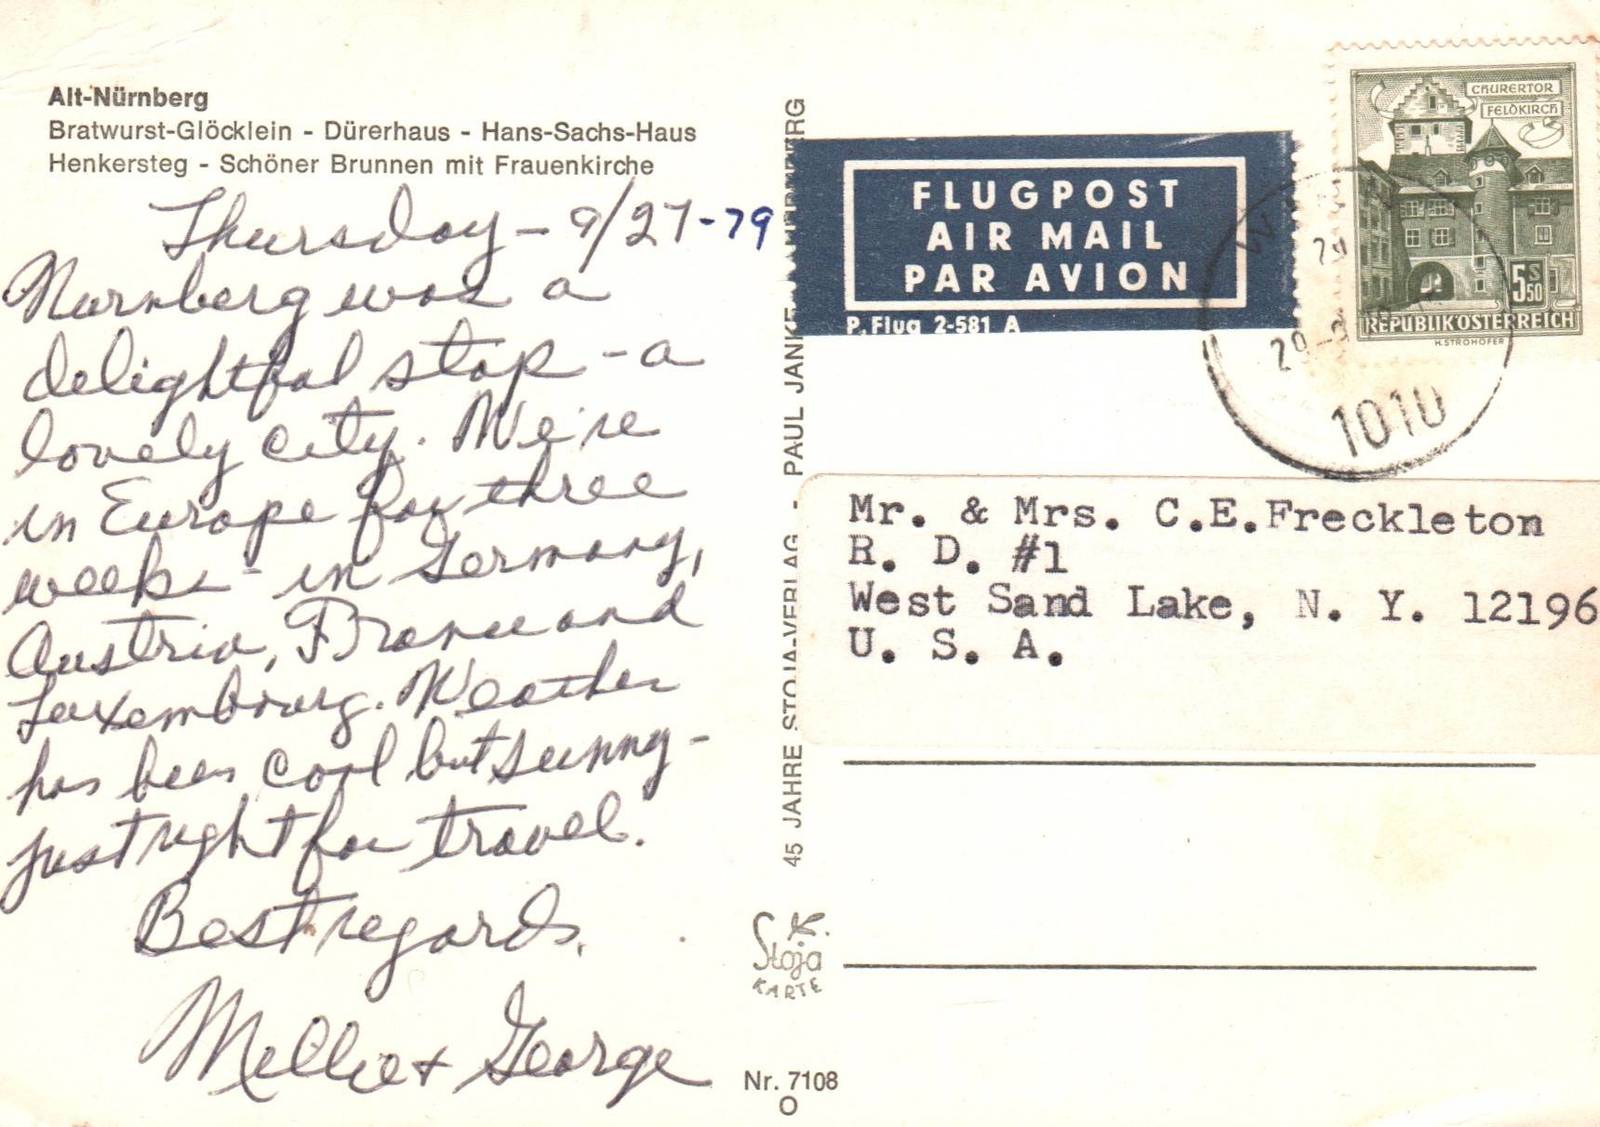 Alt-Nürnberg
Bratwurst-Glöcklein - Dürerhaus - Hans-Sachs-Haus
Henkersteg - Schöner Brunnen mit Frauenkirche
Thursday - 9/27-79
Nurnberg was a
delightful stop - a
lovely city. We're
in Europe for three
weeks - in Germany,
Austria, France and
Luxembourg. Weather
has been cool but sunny -
just right for travel.
Best regards,
Millie + George
45 JAHRE STOJA-VERLAG - PAUL JANKE
Stoja
KARTE
Nr. 7108
O
FLUGPOST
AIR MAIL
PAR AVION
P. Flug 2-581 A
CHURERTOR
FELDKIRCH
5 S 50
REPUBLIK ÖSTERREICH
H. STROHOFER
1010
Mr. & Mrs. C.E.Freckleton
R. D. #1
West Sand Lake, N. Y. 12196
U. S. A.